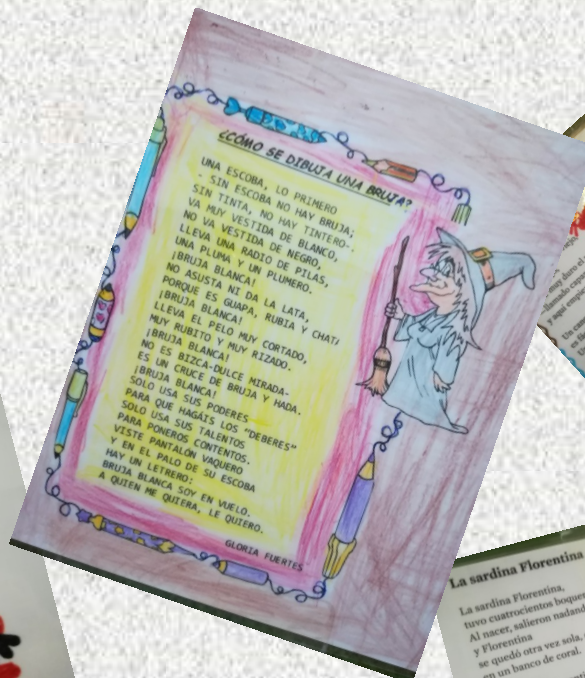 ¿CÓMO SE DIBUJA UNA BRUJA?
UNA ESCOBA, LO PRIMERO
- SIN ESCOBA NO HAY BRUJA;
SIN TINTA, NO HAY TINTERO-.
VA MUY VESTIDA DE BLANCO,
NO VA VESTIDA DE NEGRO,
LLEVA UNA RADIO DE PILAS,
UNA PLUMA Y UN PLUMERO.
¡BRUJA BLANCA!
NO ASUSTA NI DA LA LATA,
PORQUE ES GUAPA, RUBIA Y CHATA
¡BRUJA BLANCA!
LLEVA EL PELO MUY CORTADO,
MUY RUBITO Y MUY RIZADO.
¡BRUJA BLANCA!
NO ES BIZCA-DULCE MIRADA-
ES UN CRUCE DE BRUJA Y HADA.
¡BRUJA BLANCA!
SOLO USA SUS PODERES
PARA QUE HAGÁIS LOS "DEBERES"
SOLO USA SUS TALENTOS
PARA PONEROS CONTENTOS.
VISTE PANTALÓN VAQUERO
Y EN EL PALO DE SU ESCOBA
HAY UN LETRERO:
BRUJA BLANCA SOY EN VUELO.
A QUIEN ME QUIERA, LE QUIERO.
GLORIA FUERTES
La sardina Florentina
La sardina Florentina,
tuvo cuatrocientos
Al nacer, salieron nadando
y Florentina
se quedó otra vez sola
en un banco de coral.